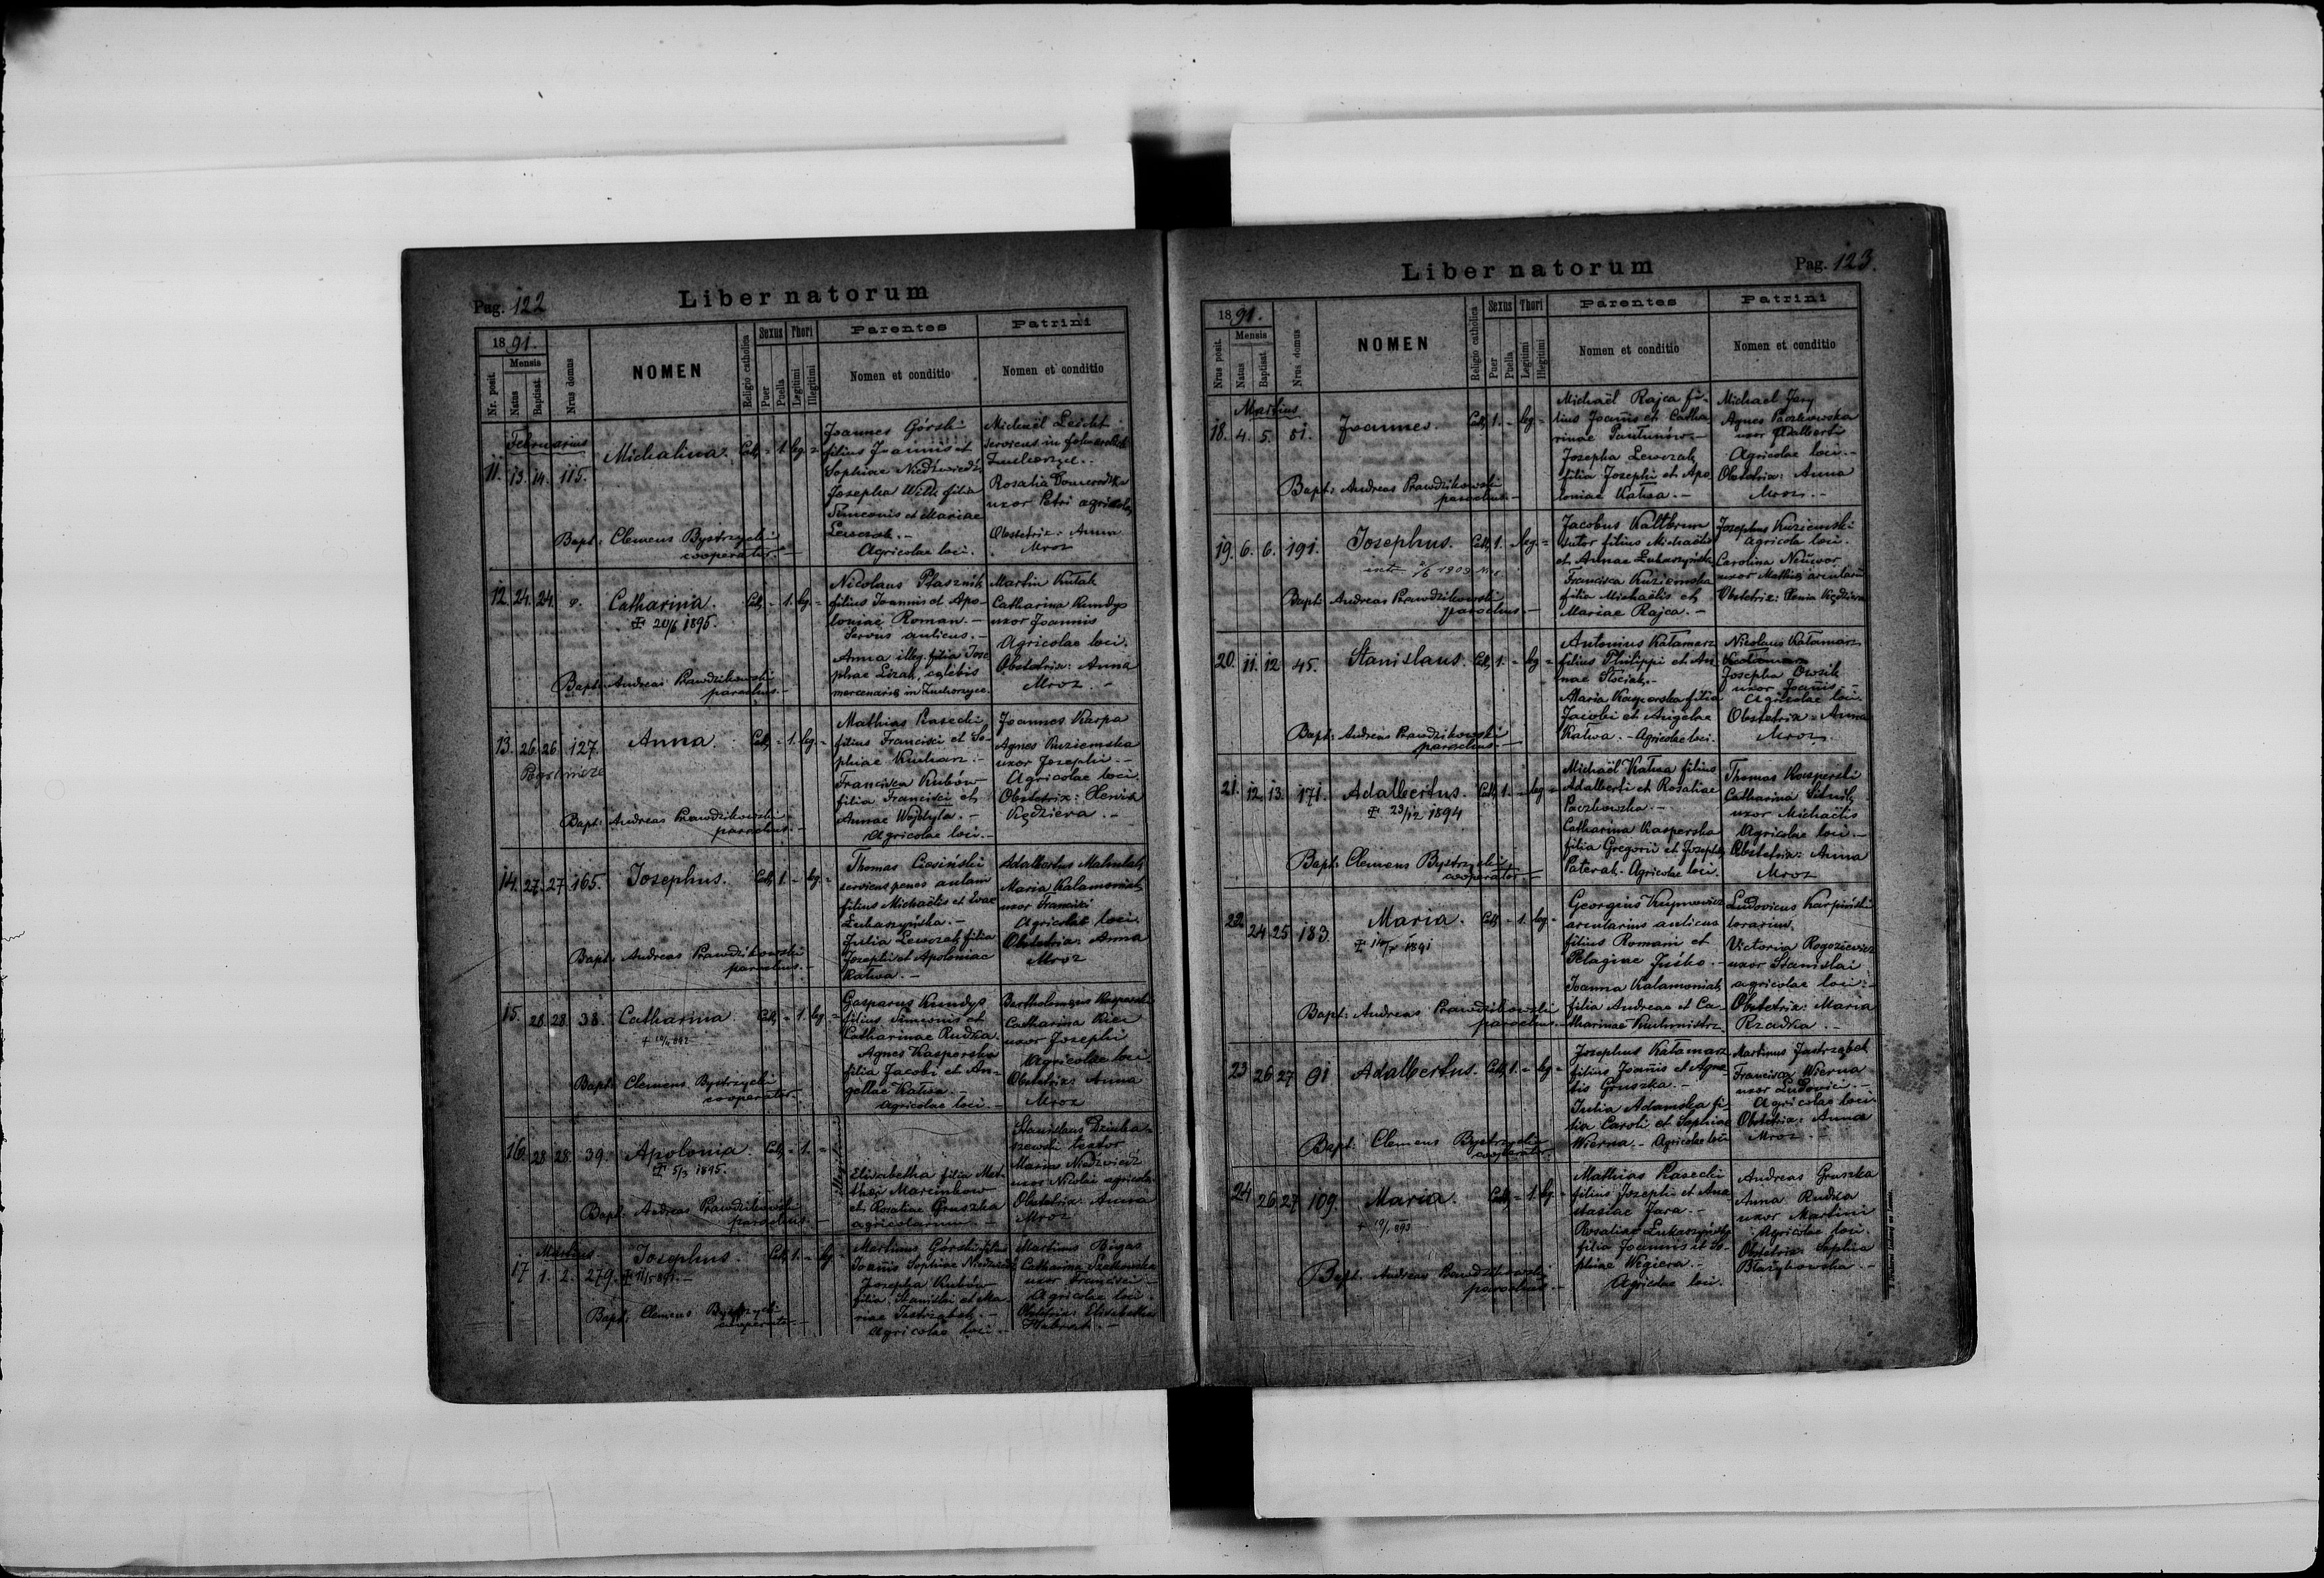 Pag. 122
Liber natorum
1891.
Nr. posit.
Mensis
Natus
Baptisat.
Nrus domus
NOMEN
Religio catholica
Sexus
Puer
Puella
Thori
Legitimi
Illegitimi
Parentes
Nomen et conditio
Patrini
Nomen et conditio
Februarius
11. 13. 14. 115.
Michalina. Cath - 1. leg. -
Joannes Górski
filius Joannis et
Sophiae Niedźwiedź
Josepha Wilk filia
Simeonis et Mariae
Lewczak. -
Agricolae loci.
Michaël Leicht
serviens in
Rosalia
uxor Petri agricolae
Obstetrix: Anna
Mroz
Bapt: Clemens Bystrzycki
cooperator
12. 24. 24. Catharina. Cath - 1. leg. -
20/6 1895.
Nicolaus Ptasznik
filius Joannis et Apo-
loniae Roman. -
Servus aulicus. -
Anna illeg. filia Jose
phae Lizak, coelibis
mercenaria in
Martin Kutak
Catharina Kundys
uxor Joannis
Agricolae loci.
Obstetrix: Anna
Mroz. -
Bapt: Andreas Prawdzikowski
parochus. -
13. 26. 26. 127. Anna. Cath - 1. leg. -
Mathias Kasecki
filius Francisci et So-
phiae Kuchar. -
Francisca Kubów
filia Francisci et
Annae Wojtyla. -
Agricolae loci. -
Joannes Karpa
Agnes Kuziemska
uxor Josephi -
Agricolae loci.
Obstetrix: Xenia
Kędziera. -
Bapt: Andreas Prawdzikowski
parochus. -
14. 27. 27. 165. Josephus. Cath 1. - leg. -
Thomas Ciesinski
serviens penes aulam
filius Michaëlis et Evae
Łukaszyńska. -
Julia Lewczak filia
Josephi et Apoloniae
Katwa. -
Adalbertus
Maria Kalamoniak
uxor Francisci
Agricolae loci.
Obstetrix: Anna
Mroz
Bapt: Andreas Prawdzikowski
parochus. -
15. 28. 28. 38. Catharina. Cath - 1. leg. -
Gasparus Kundys
filius Simeonis et
Catharinae Rudka.
Agnes Kasperska
filia Jacobi et An-
gellae Katwa. -
Agricolae loci. -
Bartholomaeus Kasperski
Catharina
uxor Josephi
Agricolae loci.
Obstetrix: Anna
Mroz
Bapt: Clemens Bystrzycki
cooperator
16. 28. 28. 39. Apolonia. Cath - 1. -
5/3 1895.
Elisabetha filia Mat-
thei Marcinkow
et Rosaliae Gruszka
agricolarum -
Stanislaus
textor
Maria Niedźwiedź
uxor Nicolai agricolae
Obstetrix: Anna
Mroz
Bapt: Andreas Prawdzikowski
parochus. -
Martius
17 1. 2. 279. Josephus. Cath 1. - leg -
Martinus Górski filius
Joannis Sophiae Niedźwiedź
Josepha Kubów
filia Stanislai et Ma-
riae Jastrząbek. -
Agricolae loci. -
Martinus Bigas
Catharina
uxor Francisci -
Agricolae loci.
Obstetrix: Elisabetha
Bapt: Clemens Bystrzycki
cooperator
Liber natorum
Pag. 123.
1891.
Nrus posit.
Mensis
Natus
Baptisat.
Nrus domus
NOMEN
Religio catholica
Sexus
Puer
Puella
Thori
Legitimi
Illegitimi
Parentes
Nomen et conditio
Patrini
Nomen et conditio
Martius
18. 4. 5. 51. Joannes. Cath 1. - leg -
Michaël Rajca fi-
lius Joannis et Catha
rinae Pantunów. -
Josepha Lewczak
filia Josephi et Apo
loniae Katwa. -
Michael Jary
Agnes Paczkowska
uxor Adalberti
Agricolae loci. -
Obstetrix: Anna
Mroz. -
Bapt: Andreas Prawdzikowski
parochus. -
19. 6. 6. 191. Josephus. Cath 1. - leg. -
Jacobus Kaltbrun
sutor filius Michaëlis
et Annae Łukaszyńska
Francisca Kuziemska
filia Michaëlis et
Mariae Rajca. -
Josephus Kuziemski
agricola loci.
Carolina
uxor Mathiae arcularii
Obstetrix: Xenia Kędziera
Bapt: Andreas Prawdzikowski
parochus. -
20. 11. 12 45. Stanislaus. Cath 1. - leg -
Antonius Katamarz
filius Philippi et An-
nae Stociak. -
Maria Kasperska filia
Jacobi et Angelae
Katwa. - Agricolae loci.
Nicolaus Katamarz
Josepha Owsik
uxor Joannis -
Agricolae loci
Obstetrix: Anna
Mroz.
Bapt: Andreas Prawdzikowski
parochus. -
21. 12. 13. 171. Adalbertus. Cath 1. - leg -
23/12 1894
Michaël Katwa filius
Adalberti et Rosaliae
Paczkowska. -
Catharina Kasperska
filia Gregorii et Josepha
Paterak. Agricolae loci.
Thomas Kasperski
Catharina Sitnik
uxor Michaëlis
Agricolae loci -
Obstetrix: Anna
Mroz
Bapt: Clemens Bystrzycki
cooperator
22. 24 25 183. Maria. Cath - 1. leg -
1891
Georgius
arcularius aulicus
filius Romani et
Pelagiae Juśko. -
Joanna Kalamoniak
filia Andreae et Ca-
tharinae Kuchmistrz.
Ludovicus Karpiński
Victoria Rogoziewicz
uxor Stanislai
agricolae loci. -
Obstetrix: Maria
Rzadka. -
Bapt: Andreas Prawdzikowski
parochus. -
23 26 27 91 Adalbertus. Cath 1. - leg -
Josephus Katamarz
filius Joannis et Agne-
tis Gruszka. -
Julia Adamska fi-
lia Caroli et Sophiae
Wierna. - Agricolae loci
Martinus Jastrząbek
Francisca Wierna
uxor Ludovici. -
Agricolae loci.
Obstetrix: Anna
Mroz. -
Bapt: Clemens Bystrzycki
cooperator
24 26. 27 109. Maria. Cath - 1. leg. -
Mathias Kasecki
filius Josephi et Ana
stasiae Jara. -
Rosalia Łukaszyńska
filia Joannis et So-
phiae Węgiera. -
Agricolae loci.
Andreas Gruszka
Anna Rudka
uxor Martini
Agricolae loci.
Obstetrix: Sophia
Błażykowska -
Bapt: Andreas Prawdzikowski
parochus -